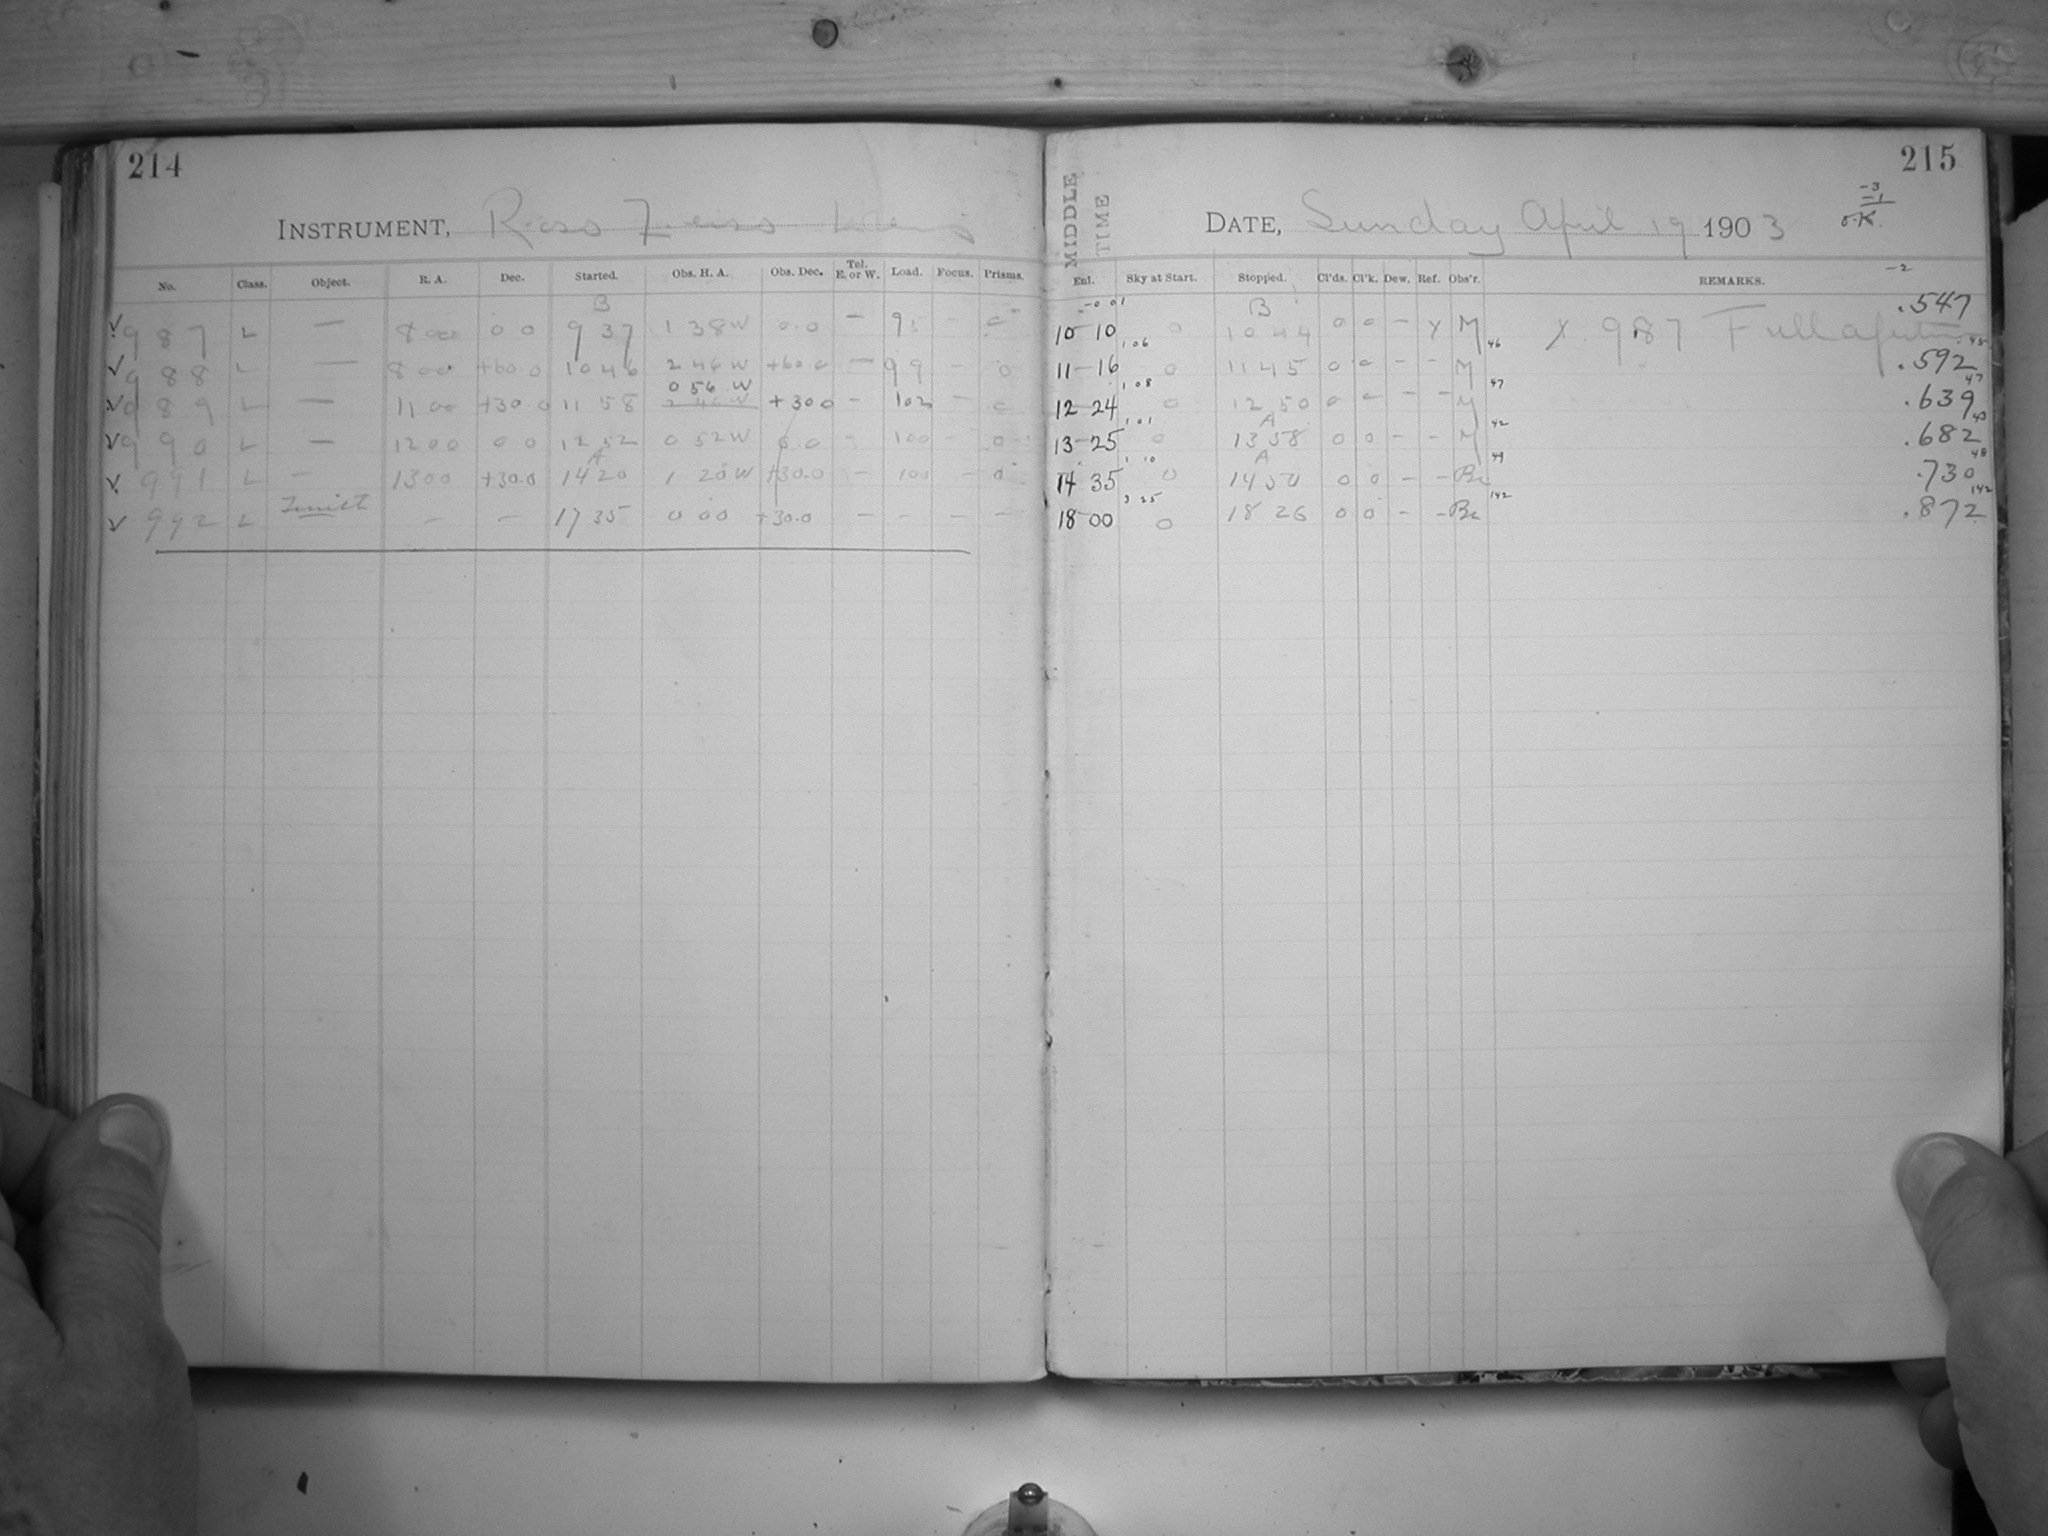 214
INSTRUMENT, Ross Zeiss Lens
No. Class. Object. R. A. Dec. Started. Obs. H. A. Obs. Dec. Tel. E. or W. Load. Focus. Prisms.
B
✓ 987 L — 8 00 0 0 9 37 1 38 W 0.0 — 95 — 0
✓ 988 L — 8 00 +60.0 10 46 2 46 W +60.0 — 99 — 0
0 56 W
✓ 989 L — 11 00 +30.0 11 58 2 46 W +30.0 — 102 — 0
✓ 990 L — 12 00 0 0 12 52 0 52 W 0.0 - 100 - 0
A
✓ 991 L — 13 00 +30.0 14 20 1 20 W +30.0 — 100 — 0
✓ 992 L — — 17 35 0 00 +30.0 — — — —
215
MIDDLE TIME
DATE, Sunday April 19 1903
-3
-1
O.K.
Enl. Sky at Start. Stopped. Cl'ds. Cl'k. Dew. Ref. Obs'r. REMARKS. -2
-0 01 B .547
10-10 0 10 44 0 0 — X M X 987 Full aperture 45
1 06 46
11-16 0 11 45 0 0 - - M .592
1 08 47 47
12-24 0 12 50 0 0 - - M .639
1 01 A 42 43
13-25 0 13 38 0 0 - - M .682
1 10 A 49 48
14 35 0 14 50 0 0 - - Bc .730
3 25 142 142
18-00 0 18 26 0 0 - - Bc .872